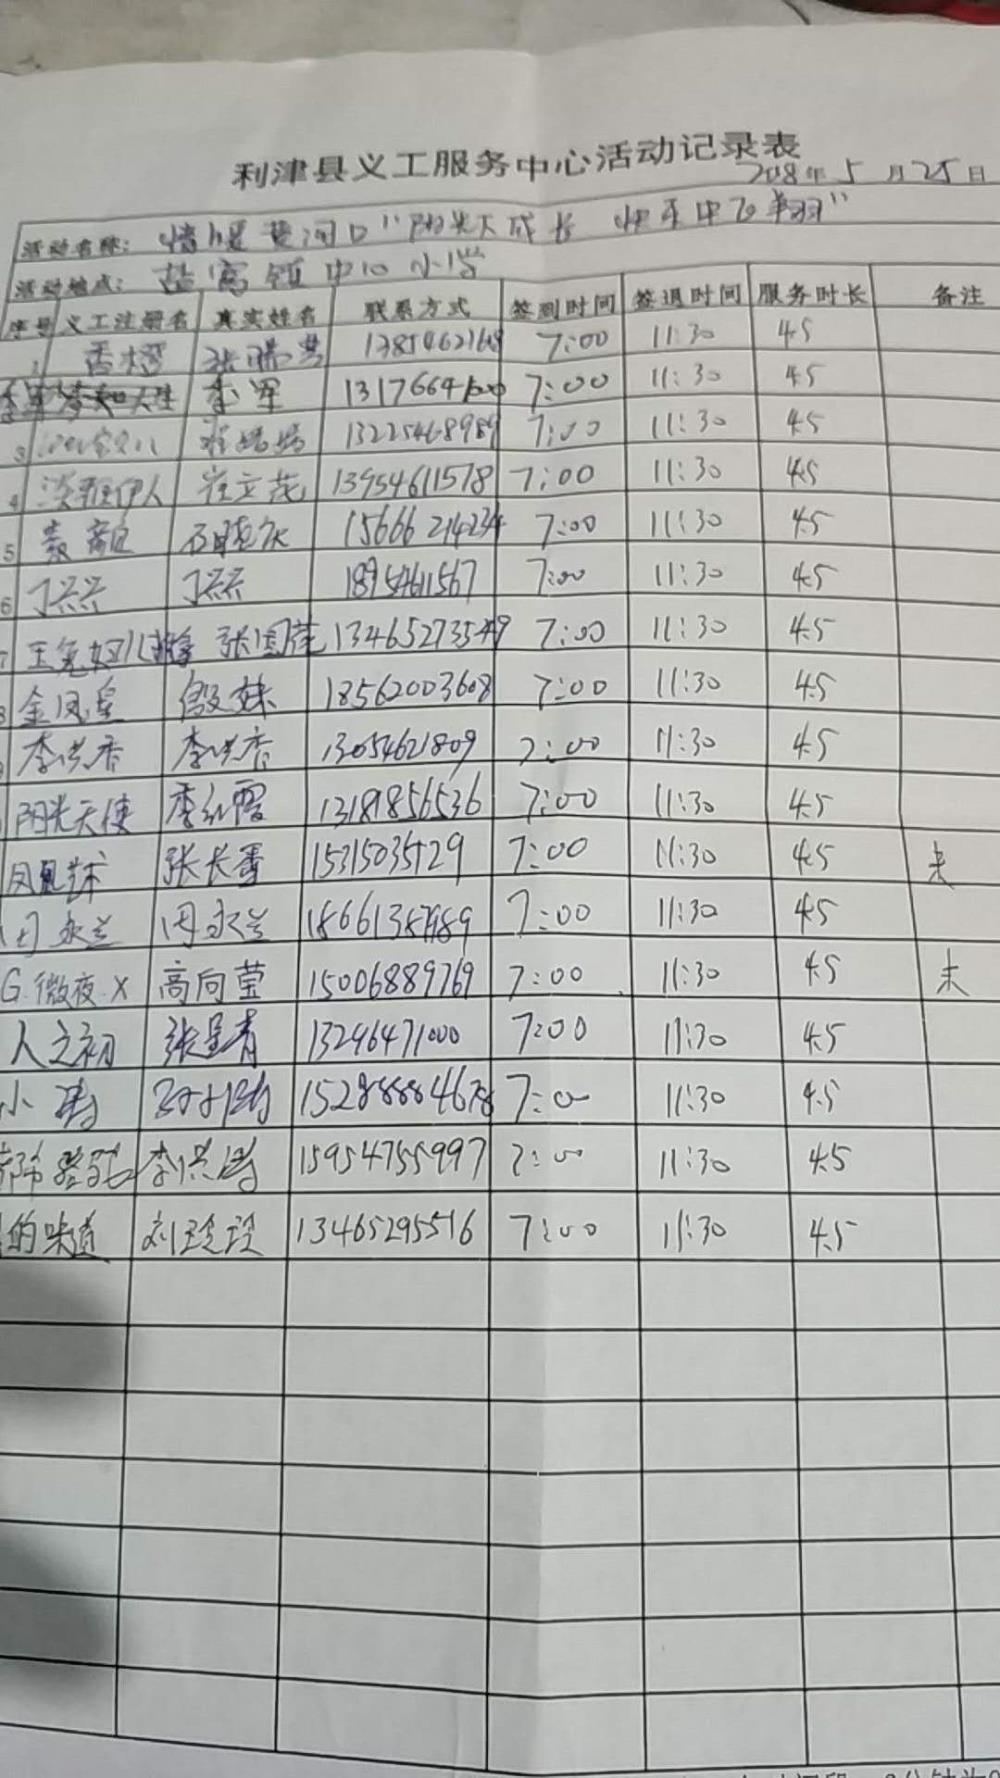 利津县义工服务中心活动记录表
2018年5月25日
活动名称: 情暖黄河口"阳光下成长 快乐中飞翔"
活动地点: 盐窝镇中心小学
序号 义工注册名 真实姓名 联系方式 签到时间 签退时间 服务时长 备注
1 香橙 张瑞芸 13854621608 7:00 11:30 4.5
李军 李军 13176641600 7:00 11:30 4.5
3 13225468989 7:00 11:30 4.5
4 淡雅伊人 崔立花 13954611578 7:00 11:30 4.5
5 15666214234 7:00 11:30 4.5
6 丁芸芸 丁芸芸 18954611567 7:00 11:30 4.5
7 张国萍 13465273549 7:00 11:30 4.5
8 金凤凰 殷妹 18562003608 7:00 11:30 4.5
李洪香 李洪香 13054621809 7:00 11:30 4.5
阳光天使 李红霞 13181856536 7:00 11:30 4.5
张长香 15315035129 7:00 11:30 4.5 未
周永兰 周永兰 7:00 11:30 4.5
G.微夜.X 高向莹 15006889769 7:00 11:30 4.5 未
人之初 张呈青 13296471000 7:00 11:30 4.5
小 15288884678 7:00 11:30 4.5
李洪 15954755997 7:00 11:30 4.5
的味道 刘玲玲 13465295516 7:00 11:30 4.5